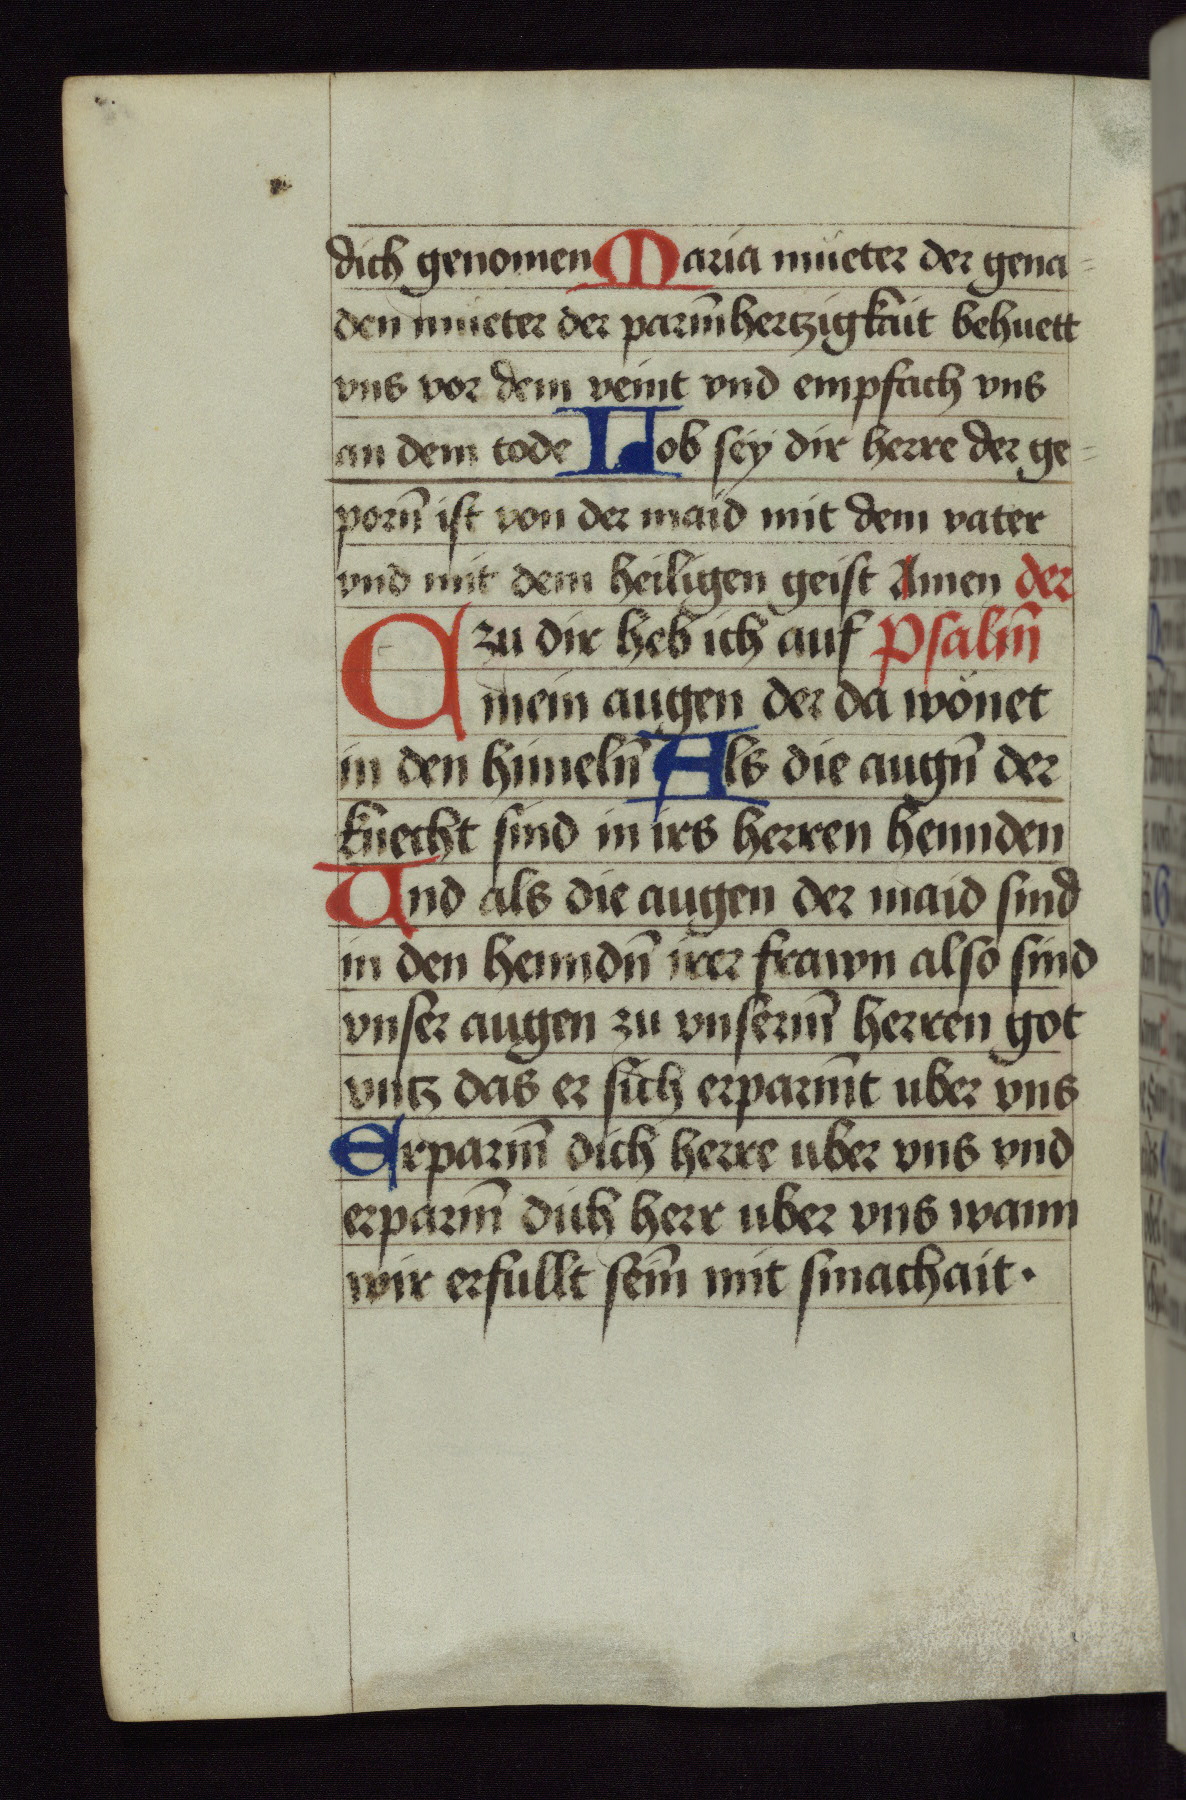 dich genomen Maria mueter der gena=
den mueter der parm̄hertzigkait behuett
vns vor dem veint vnd empfach vns
an dem tode Lob sey dir herre der ge=
porn̄ ist von der maid mit dem vater
vnd mit dem heiligen geist Amen der
Czu dir heb ich auf Psalm̄
mein augen der da wonet
in den himeln̄ Als die augn̄ der
knecht sind in irs herren hennden
Und als die augen der maid sind
in den henndn̄ irer frawn also sind
vnser augen zu vnserm̄ herren got
vntz das er sich erparm̄t uber vns
Erparm̄ dich herre uber vns vnd
erparm̄ dich herr uber vns wann
wir erfullt sein̄ mit smachait.